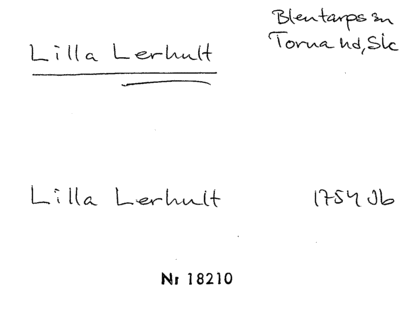 Blentarps sn
Lilla Lerhult
Torna hd, Sk
Lilla Lerhult 1754 Jb
Nr 18210